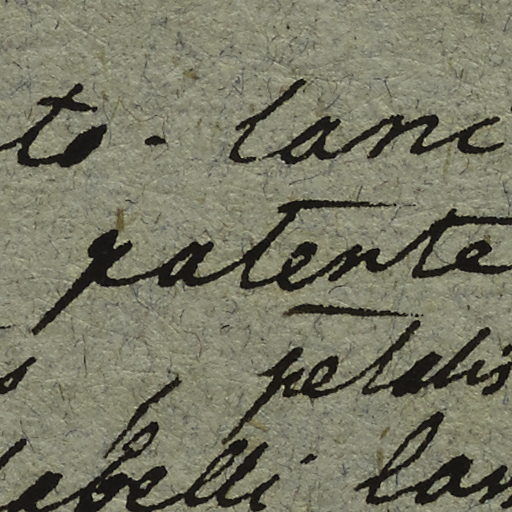 to- lanc
patente
s petalis
labelli lam